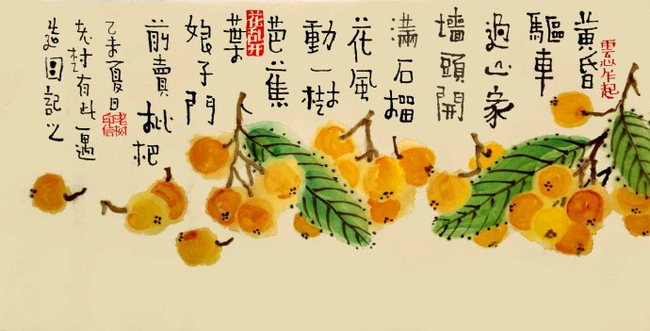 黃昏
驅車
過山家
墻頭開
滿石榴
花風
動一树
芭蕉
葉
娘子門
前賣枇杷
乙未夏日
村有此一遇
造圖記之
花乱开